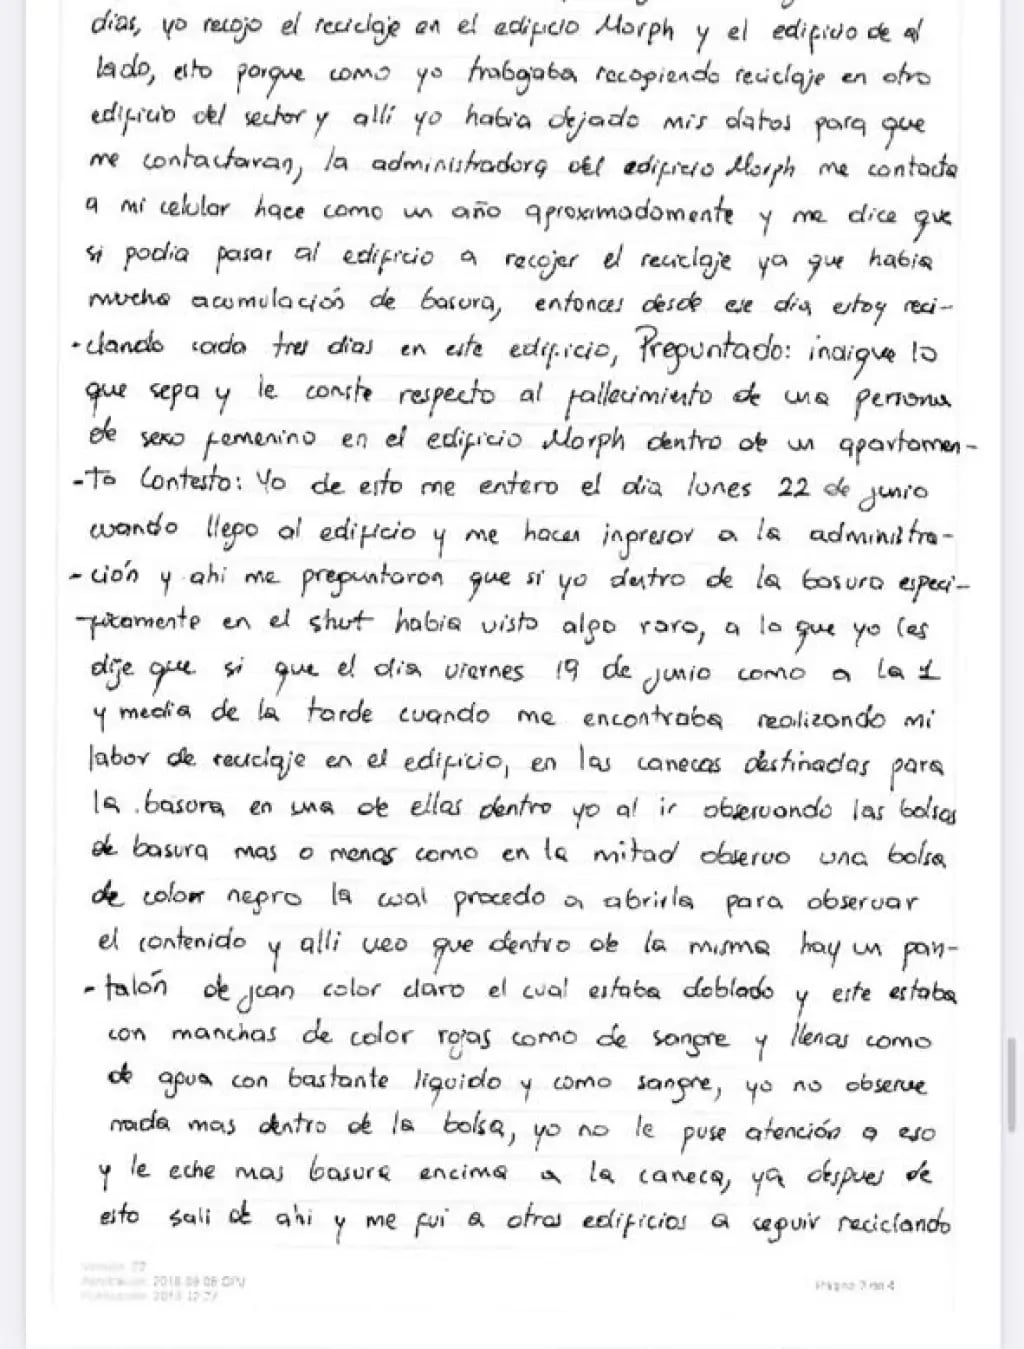 dias, yo recojo el reciclaje en el edificio Morph y el edificio de al
lado, esto porque como yo trabajaba recopiendo reciclaje en otro
edificio del sector y allí yo había dejado mis datos para que
me contactaran, la administradora del edificio Morph me contacta
a mi celular hace como un año aproximadamente y me dice que
si podia pasar al edificio a recojer el reciclaje ya que habia
mucha acumulación de basura, entonces desde ese dia estoy reci-
-clando cada tres dias en este edificio, Preguntado: indique lo
que sepa y le conste respecto al fallecimiento de una persona
de sexo femenino en el edificio Morph dentro de un apartamen-
-to Contesto: Yo de esto me entero el dia lunes 22 de junio
cuando llego al edificio y me hacen ingresar a la administra-
-ción y ahi me preguntaron que si yo dentro de la basura especi-
-ficamente en el shut habia visto algo raro, a lo que yo les
dije que si que el dia viernes 19 de junio como a la 1
y media de la tarde cuando me encontraba realizando mi
labor de reciclaje en el edificio, en las canecas destinadas para
la basura en una de ellas dentro yo al ir observando las bolsas
de basura mas o menos como en la mitad observo una bolsa
de color negro la cual procedo a abrirla para observar
el contenido y alli veo que dentro de la misma hay un pan-
-talón de jean color claro el cual estaba doblado y este estaba
con manchas de color rojas como de sangre y llenas como
de agua con bastante liquido y como sangre, yo no observe
nada mas dentro de la bolsa, yo no le puse atención a eso
y le eche mas basura encima a la caneca, ya despues de
esto sali de ahi y me fui a otros edificios a seguir reciclando
2018-09-06
Página 2 de 4